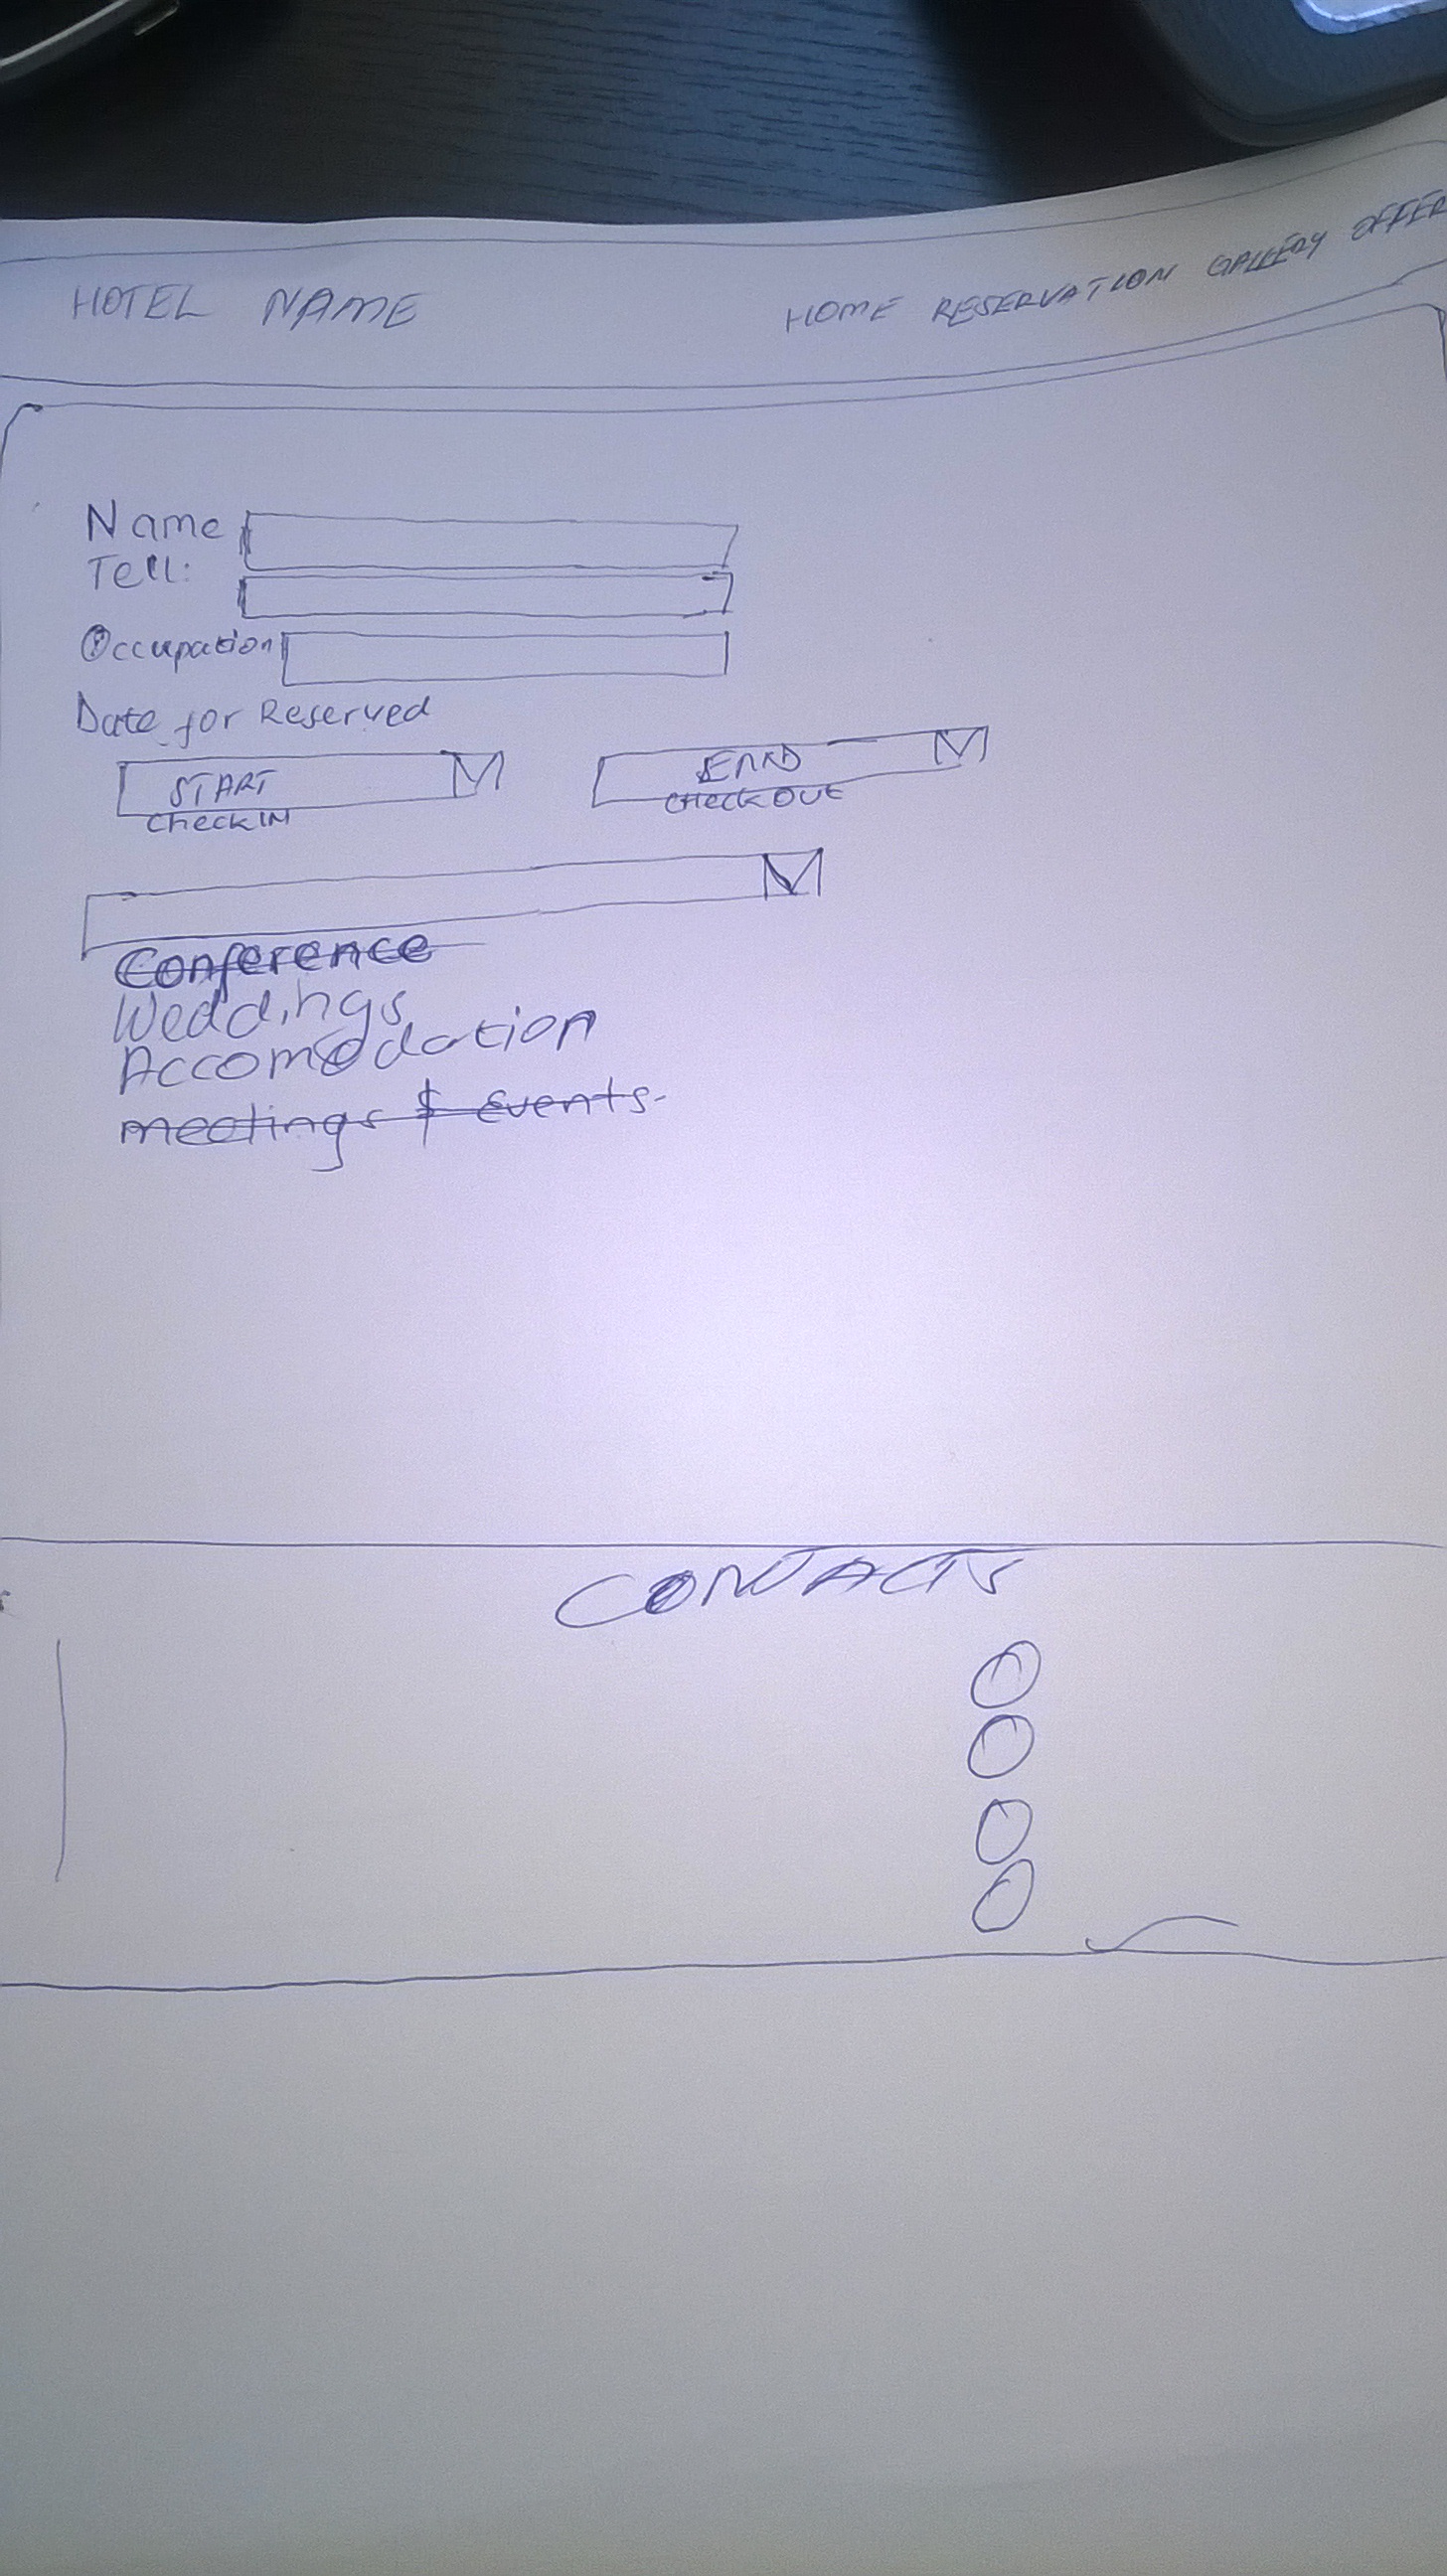 HOTEL NAME
HOME RESERVATION GALLERY OFFER
Name
Tell:
Occupation
Date for Reserved
START
CheckIN
END
CheckOUT
Conference
Weddings
Accomodation
meetings & Events
CONTACTS